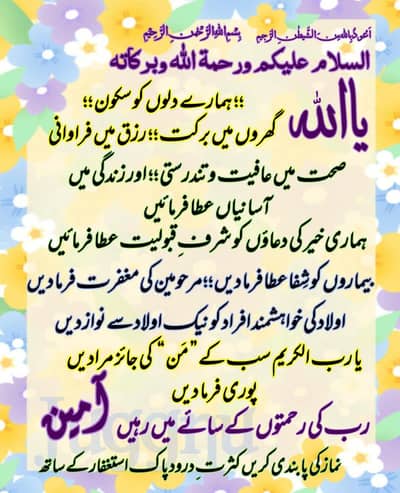 اعوذ باللہ من الشیطٰن الرجیم بسم اللہ الرحمٰن الرحیم
السلام علیکم ورحمة الله وبركاته
یااللہ
؛؛ہمارے دلوں کو سکون؛؛
گھروں میں برکت؛؛رزق میں فراوانی
صحت میں عافیت و تندرستی؛؛اور زندگی میں
آسانیاں عطا فرمائیں
ہماری خیر کی دعاؤں کو شرفِ قبولیت عطا فرمائیں
بیماروں کو شِفا عطا فرمادیں؛؛مرحومین کی مغفرت فرمادیں
اولاد کی خواہشمند افراد کو نیک اولاد سے نوازدیں
یا رب الکریم سب کے ”مَن“ کی جائز مرادیں
پوری فرمادیں
رب کی رحمتوں کے سائے میں رہیں آمین
نماز کی پابندی کریں کثرتِ درود پاک استغفار کے ساتھ